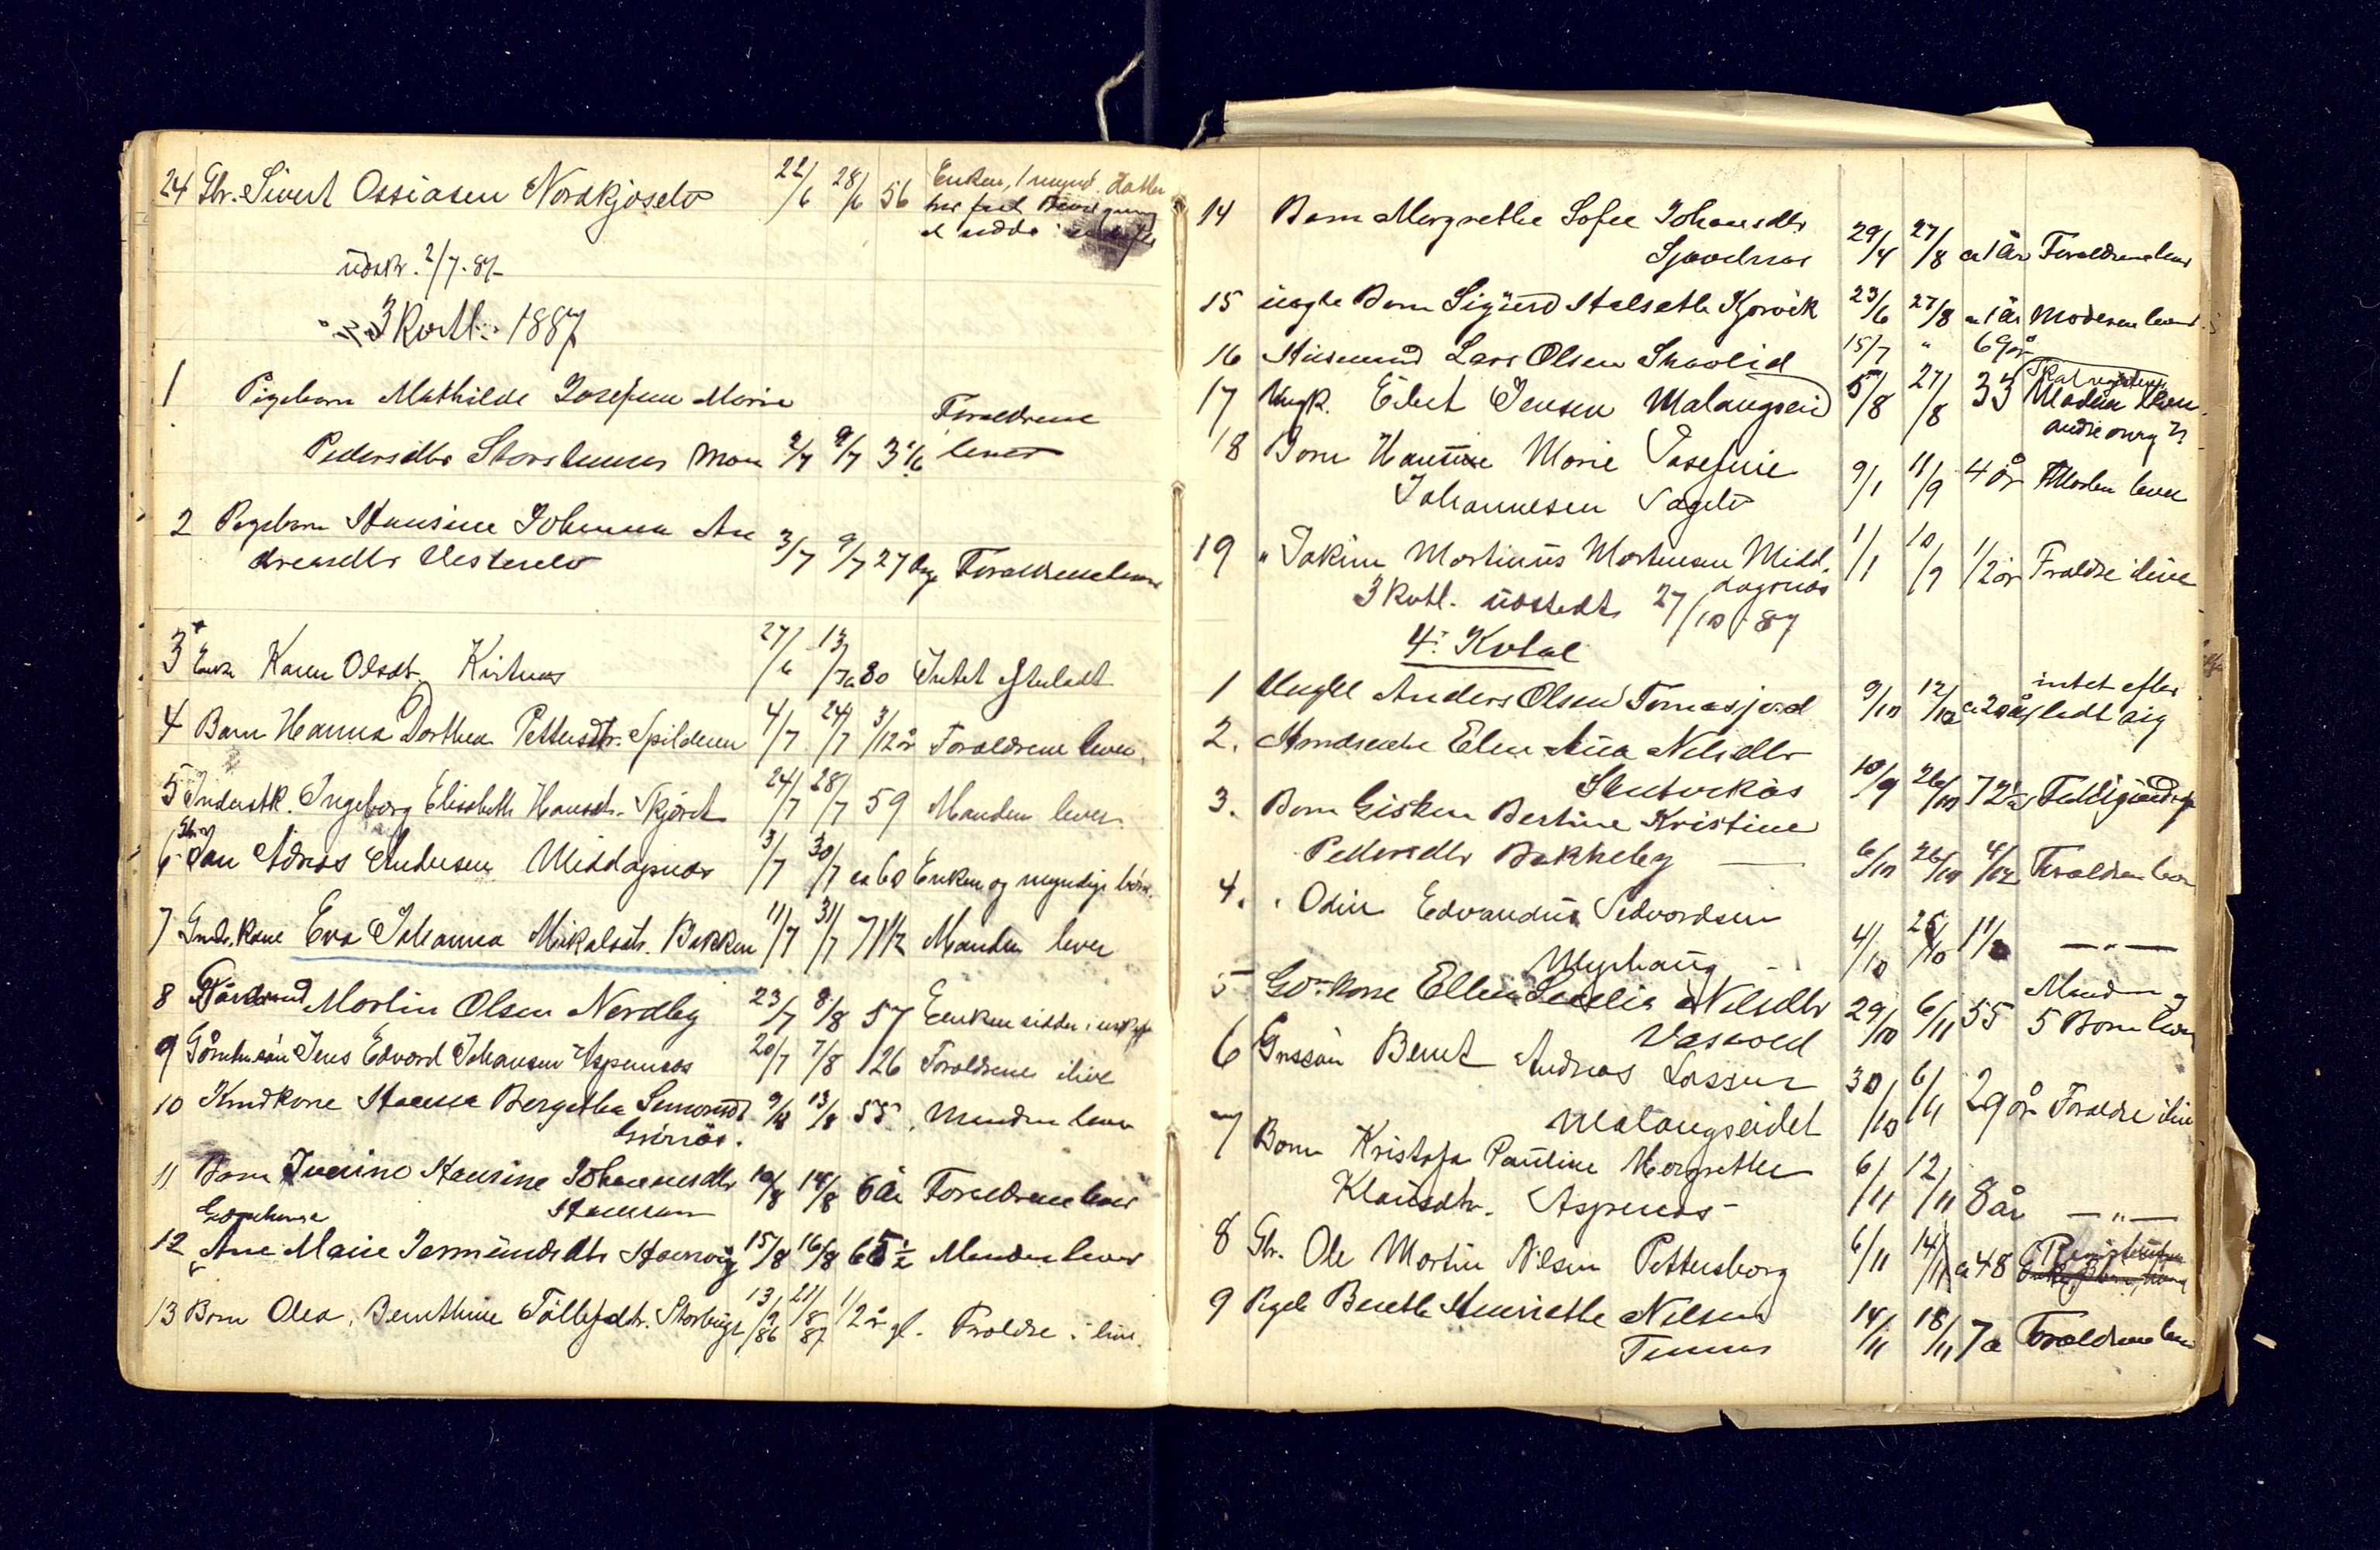 24 Gbr. Sivert Ossiasen Nordkjoselv 22/6 28/6 56 Enken, 1 mynd. Datter
har faaet Bevilgning
at sidde i
udskr. 2/7. 87
3 Kvtl. 1887
1 Pigebarn Mathilde Josefine Marie Forældrene
Pedersdtr Storstennes Moen 2/7 9/7 3 1/6 lever
2 Pigebarn Hansine Johanna An
dreasdtr Vesterelv 3/7 9/7 27 Dage Forældrene lever
3 Enke Karen Olsdt. Kirknes 27/6 13/7 ca 80 Intet efterladt
4 Barn Hanna Dorthea Pettersdtr. Spilderen 4/7 24/7 3/12 år Forældrene lever.
5 Inderstk. Ingeborg Elisabeth Hansdt. Skjåret 24/7 28/7 59 Manden lever.
Gbr.
6 Jan Adrias Andersen Middagsnes 3/7 30/7 ca 60 Enken og myndige børn.
7 Grdr. kone Eva Johanna Mikalsdtr. Bakken 11/7 31/7 71 1/2 Manden lever
8 Gårdmand Martin Olsen Nordby 23/7 8/8 57 Enken sidder i uskifte
9 Gårdmsøn Jens Edvard Johansen Aspenes 20/7 7/8 26 Foraldrene ilive
10 Kmdkone Hansea Bergethe Simonsdt 9/8 13/8 55 Manden lever
11 Barn Ivarine Hansine Johannesdtr 10/8 14/8 6 år Foraldrene lever
Gårdmkone
12 Ane Marie Jermundsdtr Havnvig 15/8 16/8 65 1/2 Manden lever
13 Barn Olea, Bernthine Tollefsdtr. 13/9 86 21/8 87 1/2 år gl. Foraldre i live.
14 Barn Margrethe Sofie Johansdtr
29/4 27/8 ca 1 år Foraldrene lever
15 uægte Barn Sigurd Halseth Kjosvik 23/6 27/8 ca 1 år Moderen lever
16 Husmand Lars Olsen Skavlid 15/7 " 69 år
17 Ungk. Eilert Jensen Malangseid 5/8 27/8 33 Moderen
18 Barn Hansine Marie Josefine 9/1 11/9 4 år Moder lever
Johannesen Sagelv
19 " Jakim Martinus Mortensen Midd. 1/1 10/9 1/2 år Foraldre ilive
dagsnes
3 Kvtl. udstedt 27/10 87
4. Kvtal
1 Ungkl Anders Olsen Tomasjord 9/10 12/10 ca 20 år intet efter
ladt sig
2. Mmdsenke Elen Ana Nilsdtr
10/9 26/10 72 år Fuldmyndige
3. Barn Gisken Bertine Kristine
Pettersdtr Bakkeby 6/10 26/10 4/12 Foraldrene lever
4. " Odin Edvardius Sedvardsen
4/10 25/10 — " —
5 Gd. kone Ellen Nilsdtr 29/10 6/11 55 Manden og
Vasvold 5 Born lever
6 Grdssøn Bernt Andreas Lassen 30/10 6/11 29 år Foraldre ilive
Malangseidet
7 Barn Kristofa Pauline Margrethe 6/11 12/11 8 år — " —
Klausdtr. Aspenes
8 Gbr. Ole Martin Nilsen Pettersborg 6/11 14/11 ca 48
9 Pige Berethe Henriethe Nilsen 14/11 18/11 7 a Foraldrene lever